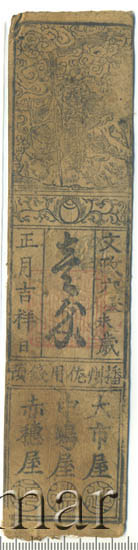 文政六癸未歳
壱匁
正月吉祥日
播州佐用
大市屋
中嶋屋
赤穂屋
mar